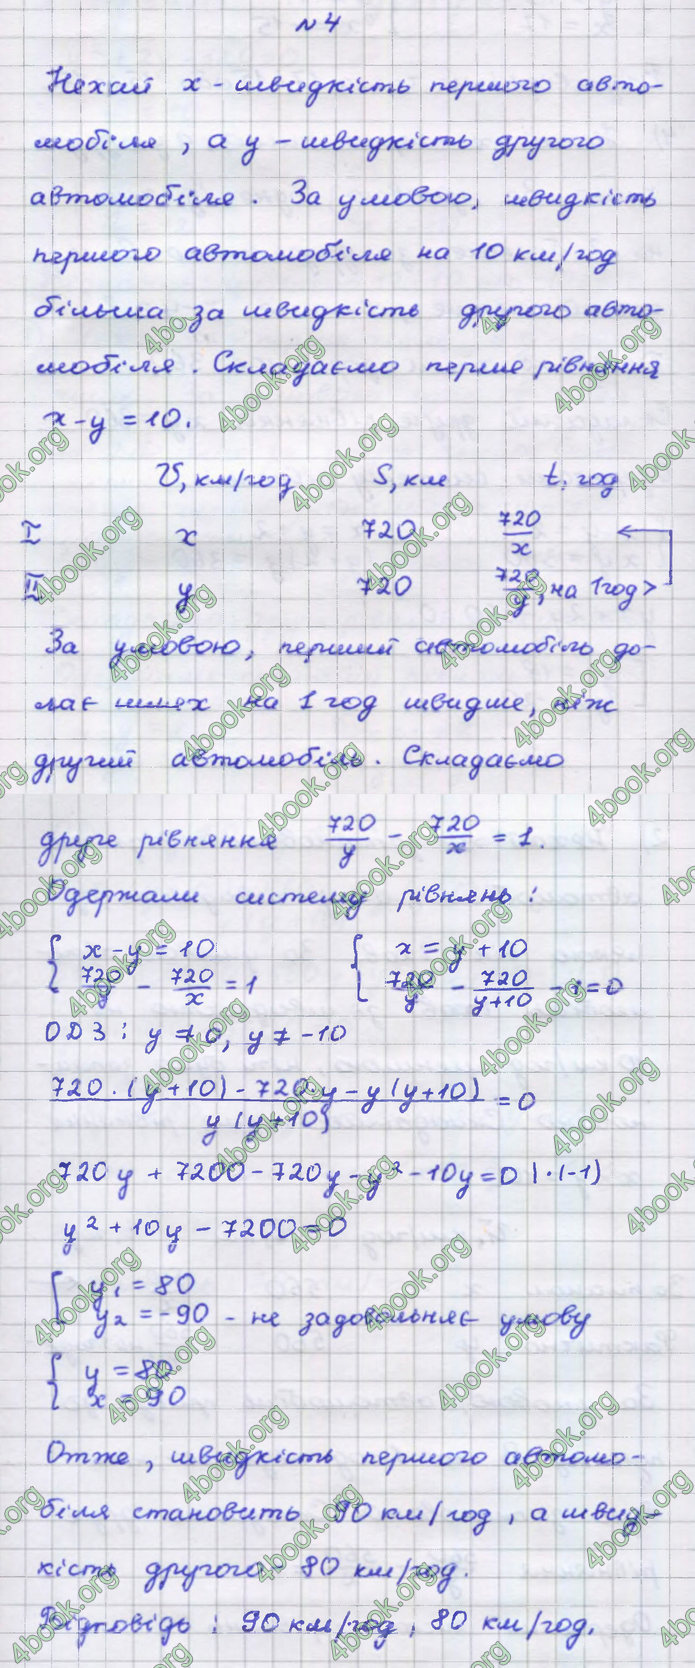 №4
Нехай x - швидкість першого авто-
мобіля, а y - швидкість другого
автомобіля. За умовою, швидкість
першого автомобіля на 10 км/год
більша за швидкість другого авто-
мобіля. Складаємо перше рівняння
x-y=10.
V, км/год S, км t, год
I x 720 720/x
II y 720 720/y, на 1год >
За умовою, перший автомобіль до-
лає шлях на 1 год швидше, ніж
другий автомобіль. Складаємо
друге рівняння 720/y - 720/x = 1.
Одержали систему рівнянь:
{ x-y=10 { x=y+10
720/y - 720/x = 1 720/y - 720/(y+10) - 1=0
ОДЗ: y≠0, y≠-10
(720·(y+10)-720·y-y(y+10))/(y(y+10)) = 0
720y+7200-720y-y²-10y=0 |·(-1)
y²+10y-7200=0
[ y₁=80
y₂=-90 - не задовольняє умову
{ y=80
x=90
Отже, швидкість першого автомо-
біля становить 90 км/год, а швид-
кість другого - 80 км/год.
Відповідь: 90 км/год; 80 км/год.
4book.org